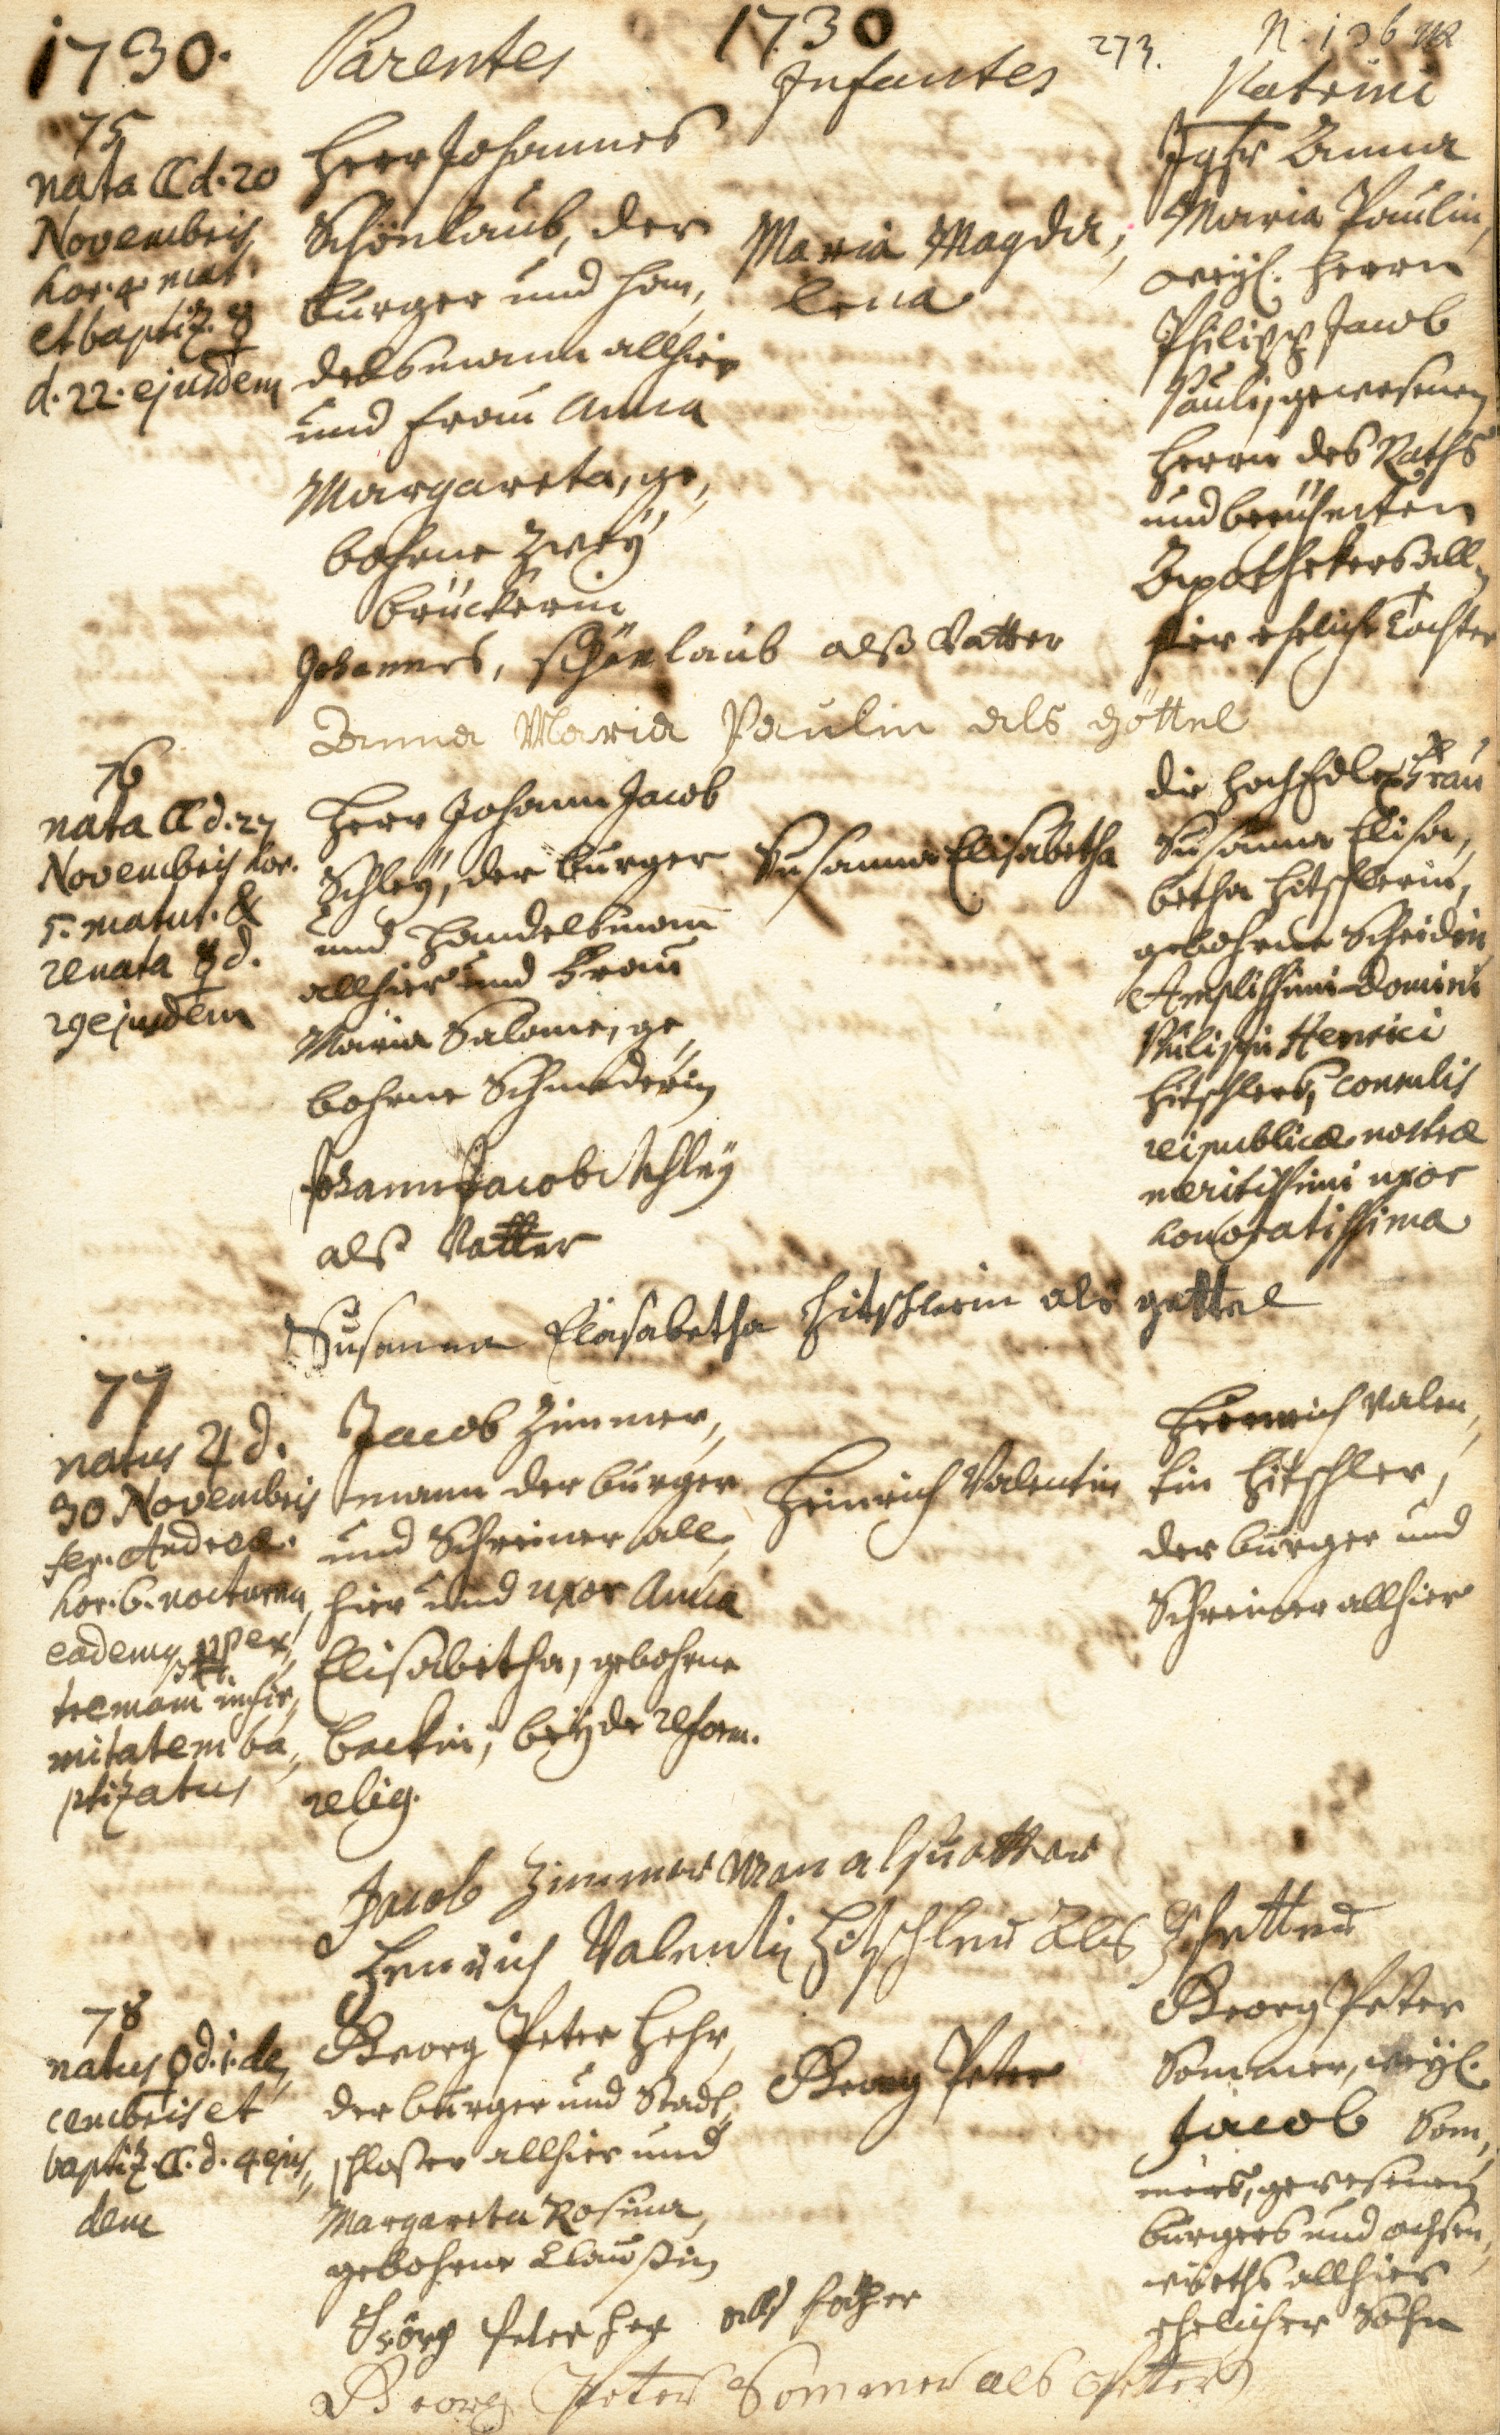 1730.
Parentes
1730
Infantes
273.
N. 136
Patrini
75
nata ☾ d. 20
Novembris
hor. 4 mat.
et baptiz. ☿
d. 22. ejusdem
Herr Johannes
Schönlaub, der
burger und han,,
delsmann allhier
und Frau Anna
Margareta, ge,,
bohrne Zwey
brückerin
Maria Magda,,
lena
Jgfr Anna
Maria Paulin,
weyl. Herrn
Philipp Jacob
Pauli, gewesenen
Herrn des Raths
und berühmten
Apothekers all,,
hier eheliche Tochter
Johannes, schönlaub alß Vatter
Anna Maria Paulin als göttel
76
nata ☾ d. 27
Novembris hor.
5. matut. &
renata ☿ d.
29 ejusdem
Herr Johann Jacob
Schleÿ, der burger
und Handelsmann
allhier und Frau
Maria Salome, ge,,
bohrne Schmederin
Susanna Elisabetha
die HochEdle Frau
Susanna Elisa,,
betha Hitschlerin,
gebohrne Scheidin
Amplissimi Domini
Philippi Henrici
Hitschlers, Consulis
reipublicæ nostræ
meritissimi uxor
honoratissima
Johann Jacob Schleÿ
alß Vatter
Susanna Elisabetha Hitschlerin als gettel
77
natus ♃ d.
30 Novembris
fer. Andreæ.
hor. 6. nocturna,
eademq. pp ex,,
tremam infir,,
mitatem ba,,
ptizatus
Jacob Zimmer,,
mann der burger
und Schreiner all,,
hier und uxor Anna
Elisabetha, gebohrne
backin, beÿde reform.
relig.
Heinrich Valentin
Heinrich Valen,,
tin Hitschler,
der burger und
Schreiner allhier
Jacob Zimmerman als vatter
Henrich Valentin Hitschler als Pfetter
78
natus ♀ d. 1. de,,
cembris et
baptiz. ☾. d. 4 ejus,,
dem
Georg Peter Hehr,
der burger und Stadt,,
schloßer allhier und
Margareta Rosina,
gebohrne Claußin
Georg Peter
Georg Peter
Sommer, weyl.
Jacob Som,,
mers, gewesenen
burgers und ochsen,,
wirths allhier
ehelicher Sohn
Jörg Peter Her als Father
Georg Peter Sommer als Petter